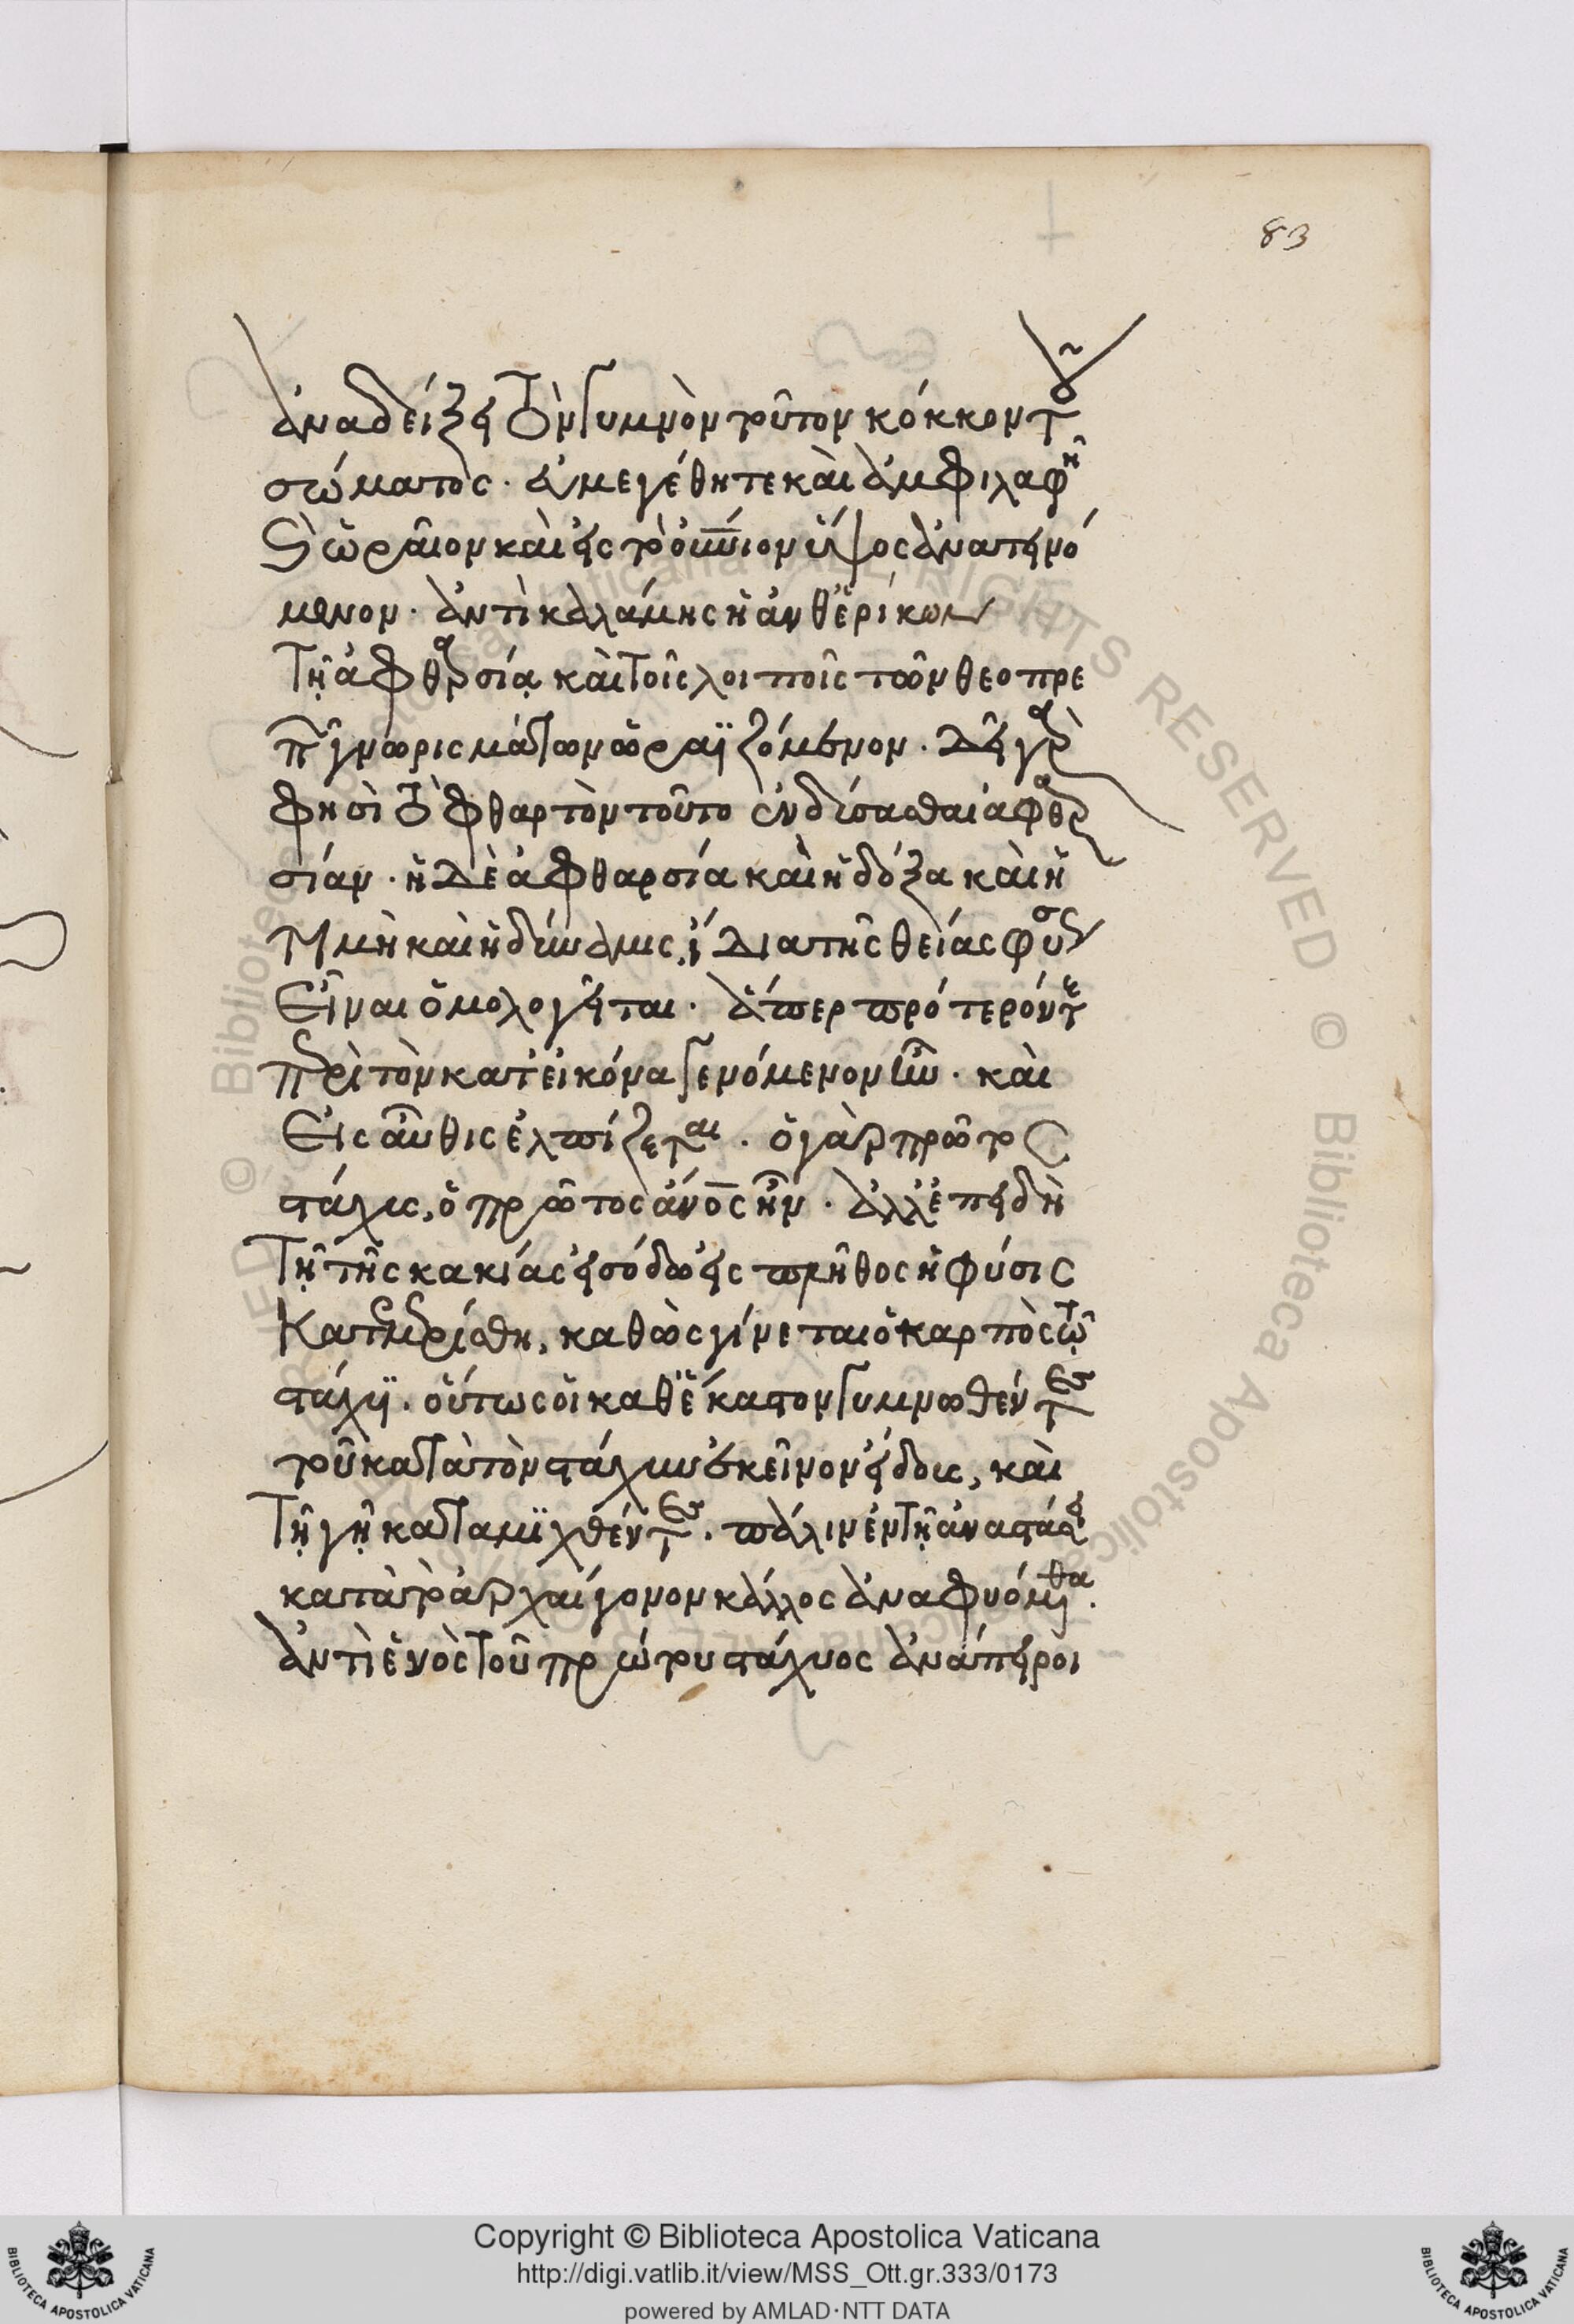 83
ἀναδείξει τὸν γυμνὸν τοῦτον κόκκον τοῦ
σώματος. εὐμεγέθη τε καὶ ἀμφιλαφῆ
καὶ ὡραῖον καὶ εἰς τὸ οὐνιον ὕψος ἀνατεινό
μενον. ἀντὶ καλάμης ἢ ἀνθερίκων
τῇ ἀφθαρσίᾳ καὶ τοῖς λοιποῖς τῶν θεοπρε
πῶν γνωρισμάτων ὡραϊζόμενον. δεῖ γὰρ
φησὶ τὸ φθαρτὸν τοῦτο ἐνδύσασθαι ἀφθαρ
σίαν. ἡ δὲ ἀφθαρσία καὶ ἡ δόξα καὶ ἡ
τιμὴ καὶ ἡ δύναμις, ἴδια τῆς θείας φύσεως
εἶναι ὁμολογεῖται. ἅπερ πρότερόν τε
περὶ τὸν κατ' εἰκόνα γενόμενον ἦν. καὶ
εἰς αὖθις ἐλπίζεται. ὁ γὰρ πρῶτος
στάχυς, ὁ πρῶτος ἄνος ἦν. ἀλλ' ἐπειδὴ
τῇ τῆς κακίας εἰσόδῳ εἰς πλῆθος ἡ φύσις
κατεμερίσθη, καθὼς γίνεται ὁ καρπὸς ἐν τῷ
στάχυϊ. οὕτως οἱ καθ' ἕκαστον γυμνωθέντες
τοῦ κατὰ τὸν στάχυν ἐκεῖνον εἴδους, καὶ
τῇ γῇ καταμιχθέντες. πάλιν ἐν τῇ ἀναστάσει
κατὰ τὸ ἀρχαίγονον κάλλος ἀναφυόμεθα.
ἀντὶ ἑνὸς τοῦ πρώτου στάχυος ἀνάπειροι
Copyright © Biblioteca Apostolica Vaticana
http://digi.vatlib.it/view/MSS_Ott.gr.333/0173
powered by AMLAD·NTT DATA